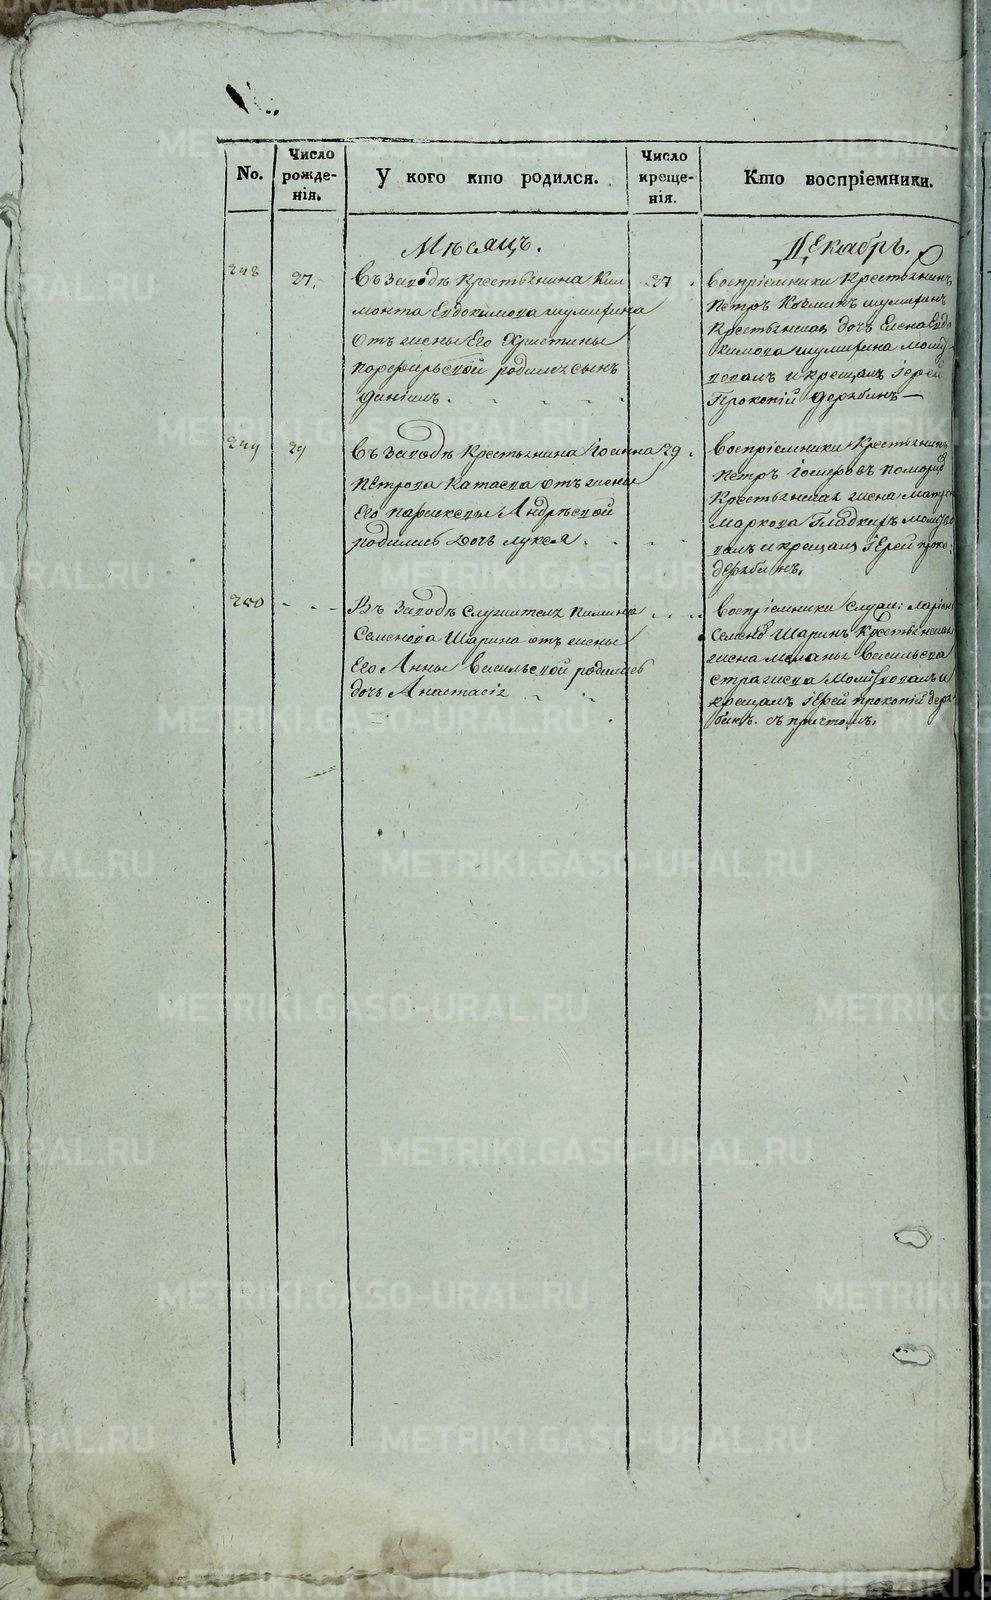 No.
Число рожде-нія.
У кого кто родился.
Число креще-нія.
Кто воспріемники.
Мѣсяцъ.
Декабрь.
248
27.
Въ заводѣ крестьянина Кли
монта Евдокимова шумихина
отъ жены Его Христины
порфирьевой родился сынъ
Даніилъ.
27.
воспріемники крестьянинъ
Петръ Козминъ шумихинъ
крестьянская дочь Елена Евдо
кимова шумихина молит
вовалъ и крещалъ Іерей
Прокопій Дерябинъ
249
29
Въ заводѣ крестьянина Іоанна
Петрова Катаева отъ жены
Его параскевы Андрѣевой
родилась дочь лукея
29.
воспріемники крестьянинъ
Петръ
крестьянская жена
маркова Гладкихъ
валъ и крещалъ Іерей проко:
дерябинъ,
250
Въ заводѣ служителя пимина
Семенова Шарина отъ жены
Его Анны Васильевой родилась
дочь Анастасія
воспріемники служи:
Семенъ Шаринъ крестьянская
жена Васильева
молитвовалъ и
крещалъ Іерей прокопій деря-
бинъ. съ причтомъ,
METRIKI.GASO-URAL.RU